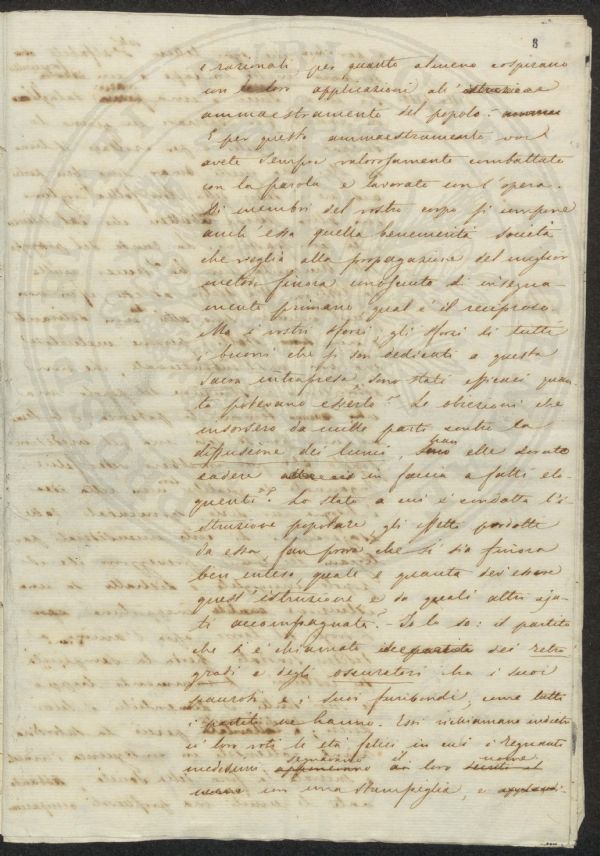 8
e razionali per quanto almeno cospirano
con le loro applicazioni all'istruzione
ammaestramento del popolo.
E per questo ammaestramento voi
avete sempre valorosamente combattuto
con la parola e lavorato con l'opera.
Di membri del vostro corpo si compone
anch'essa quella benemerita società
che veglia alla propagazione del miglior
metodo finora conosciuto di insegna-
mento primario qual è il reciproco.
Ma i vostri sforzi, gli sforzi di tutti
i buoni che si son dedicati a questa
sacra intrapresa sono stati efficaci quan-
to potevano esserlo? Le obiezioni che
insorsero da mille parti contro la
diffusione dei lumi, son elle dovute
cadere in faccia a fatti elo-
quenti? Lo stato a cui è condotta l'i-
struzione popolare, gli effetti prodotti
da essa, fan prova che si sia finora
ben inteso, quale e quanta dev'essere
quest'istruzione e da quali altri aju-
ti accompagnata? Io lo so: il partito
che si è chiamato dei retro
gradi e degli oscuratori ha i suoi
paurosi e i suoi furibondi, come tutti
i partiti ne hanno. Essi richiamano indietro
coi loro voti le età felici in cui i regnanti
segnavano il nome
medesimi loro
con una stampiglia, e